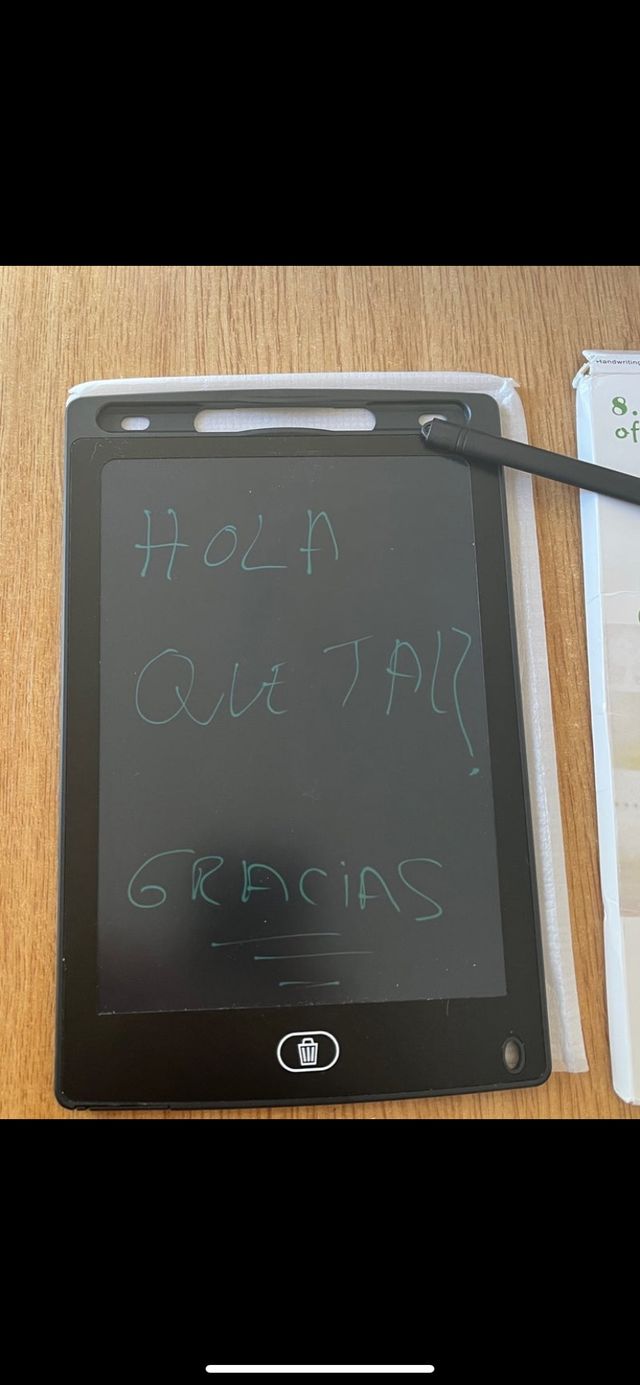 HOLA
QUE TAL?
GRACIAS
Handwriting
8.
of